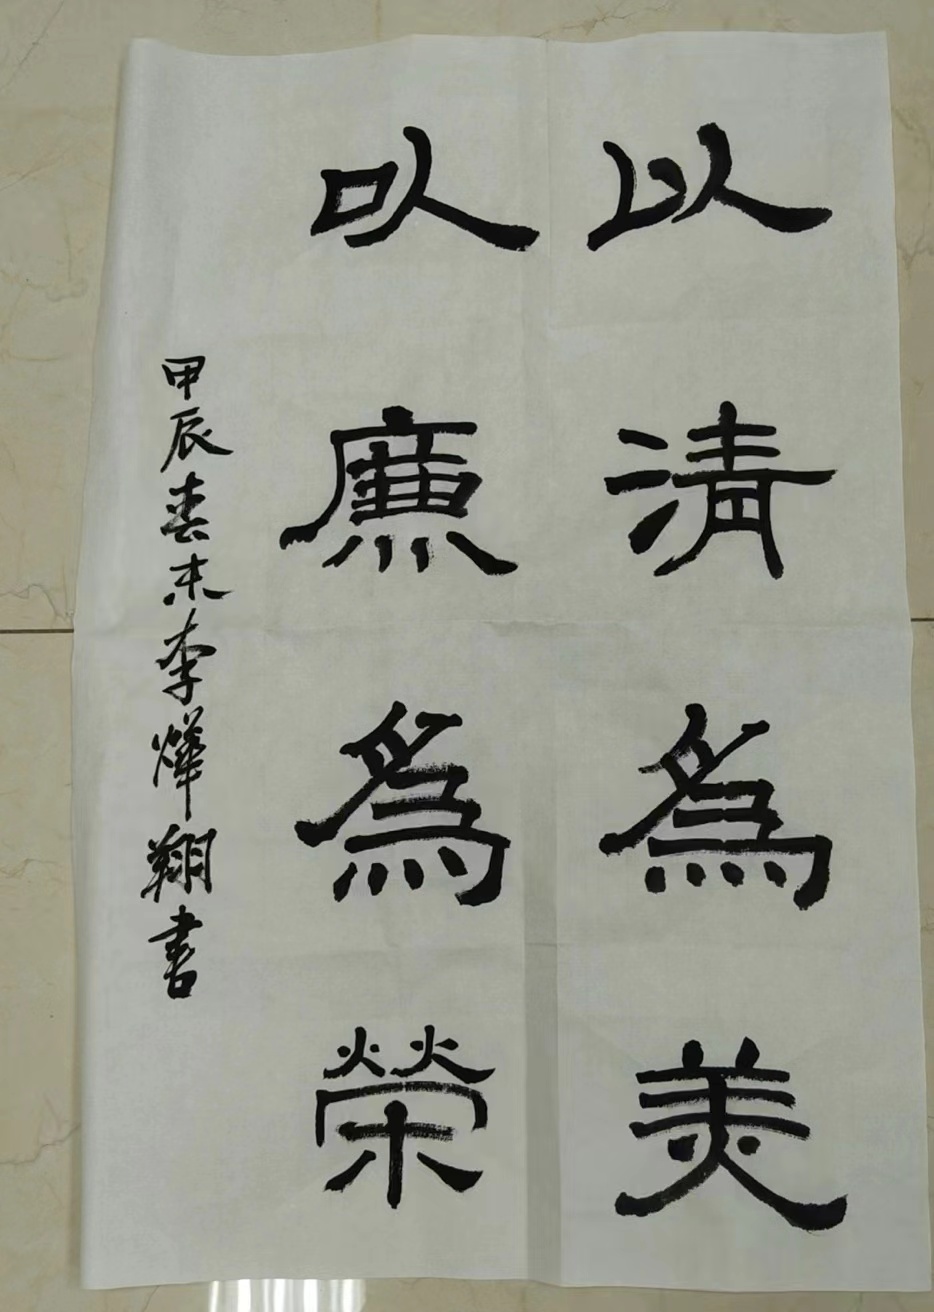 以清為美
以廉為榮
甲辰春末李燁翔書